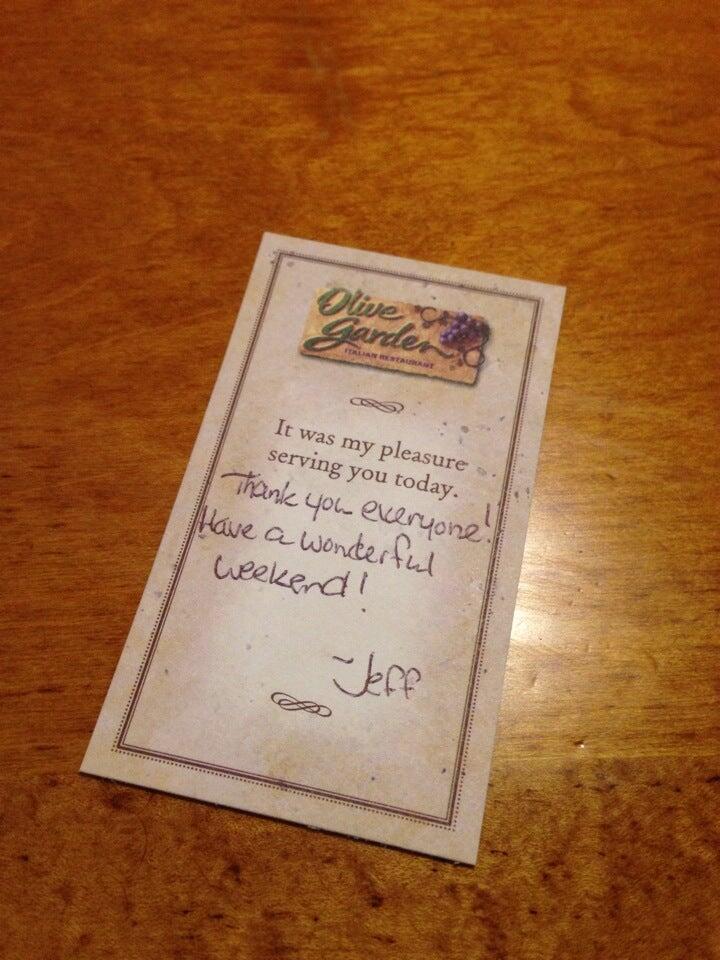 Olive
Garden
ITALIAN RESTAURANT
It was my pleasure
serving you today.
Thank you everyone!
Have a wonderful
weekend!
~Jeff